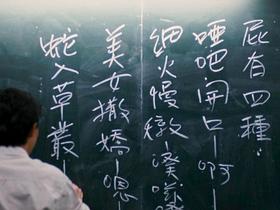 屁有四種:
啞吧開口—啊
細火慢燉—
美女撒嬌—嗯
蛇入草叢—